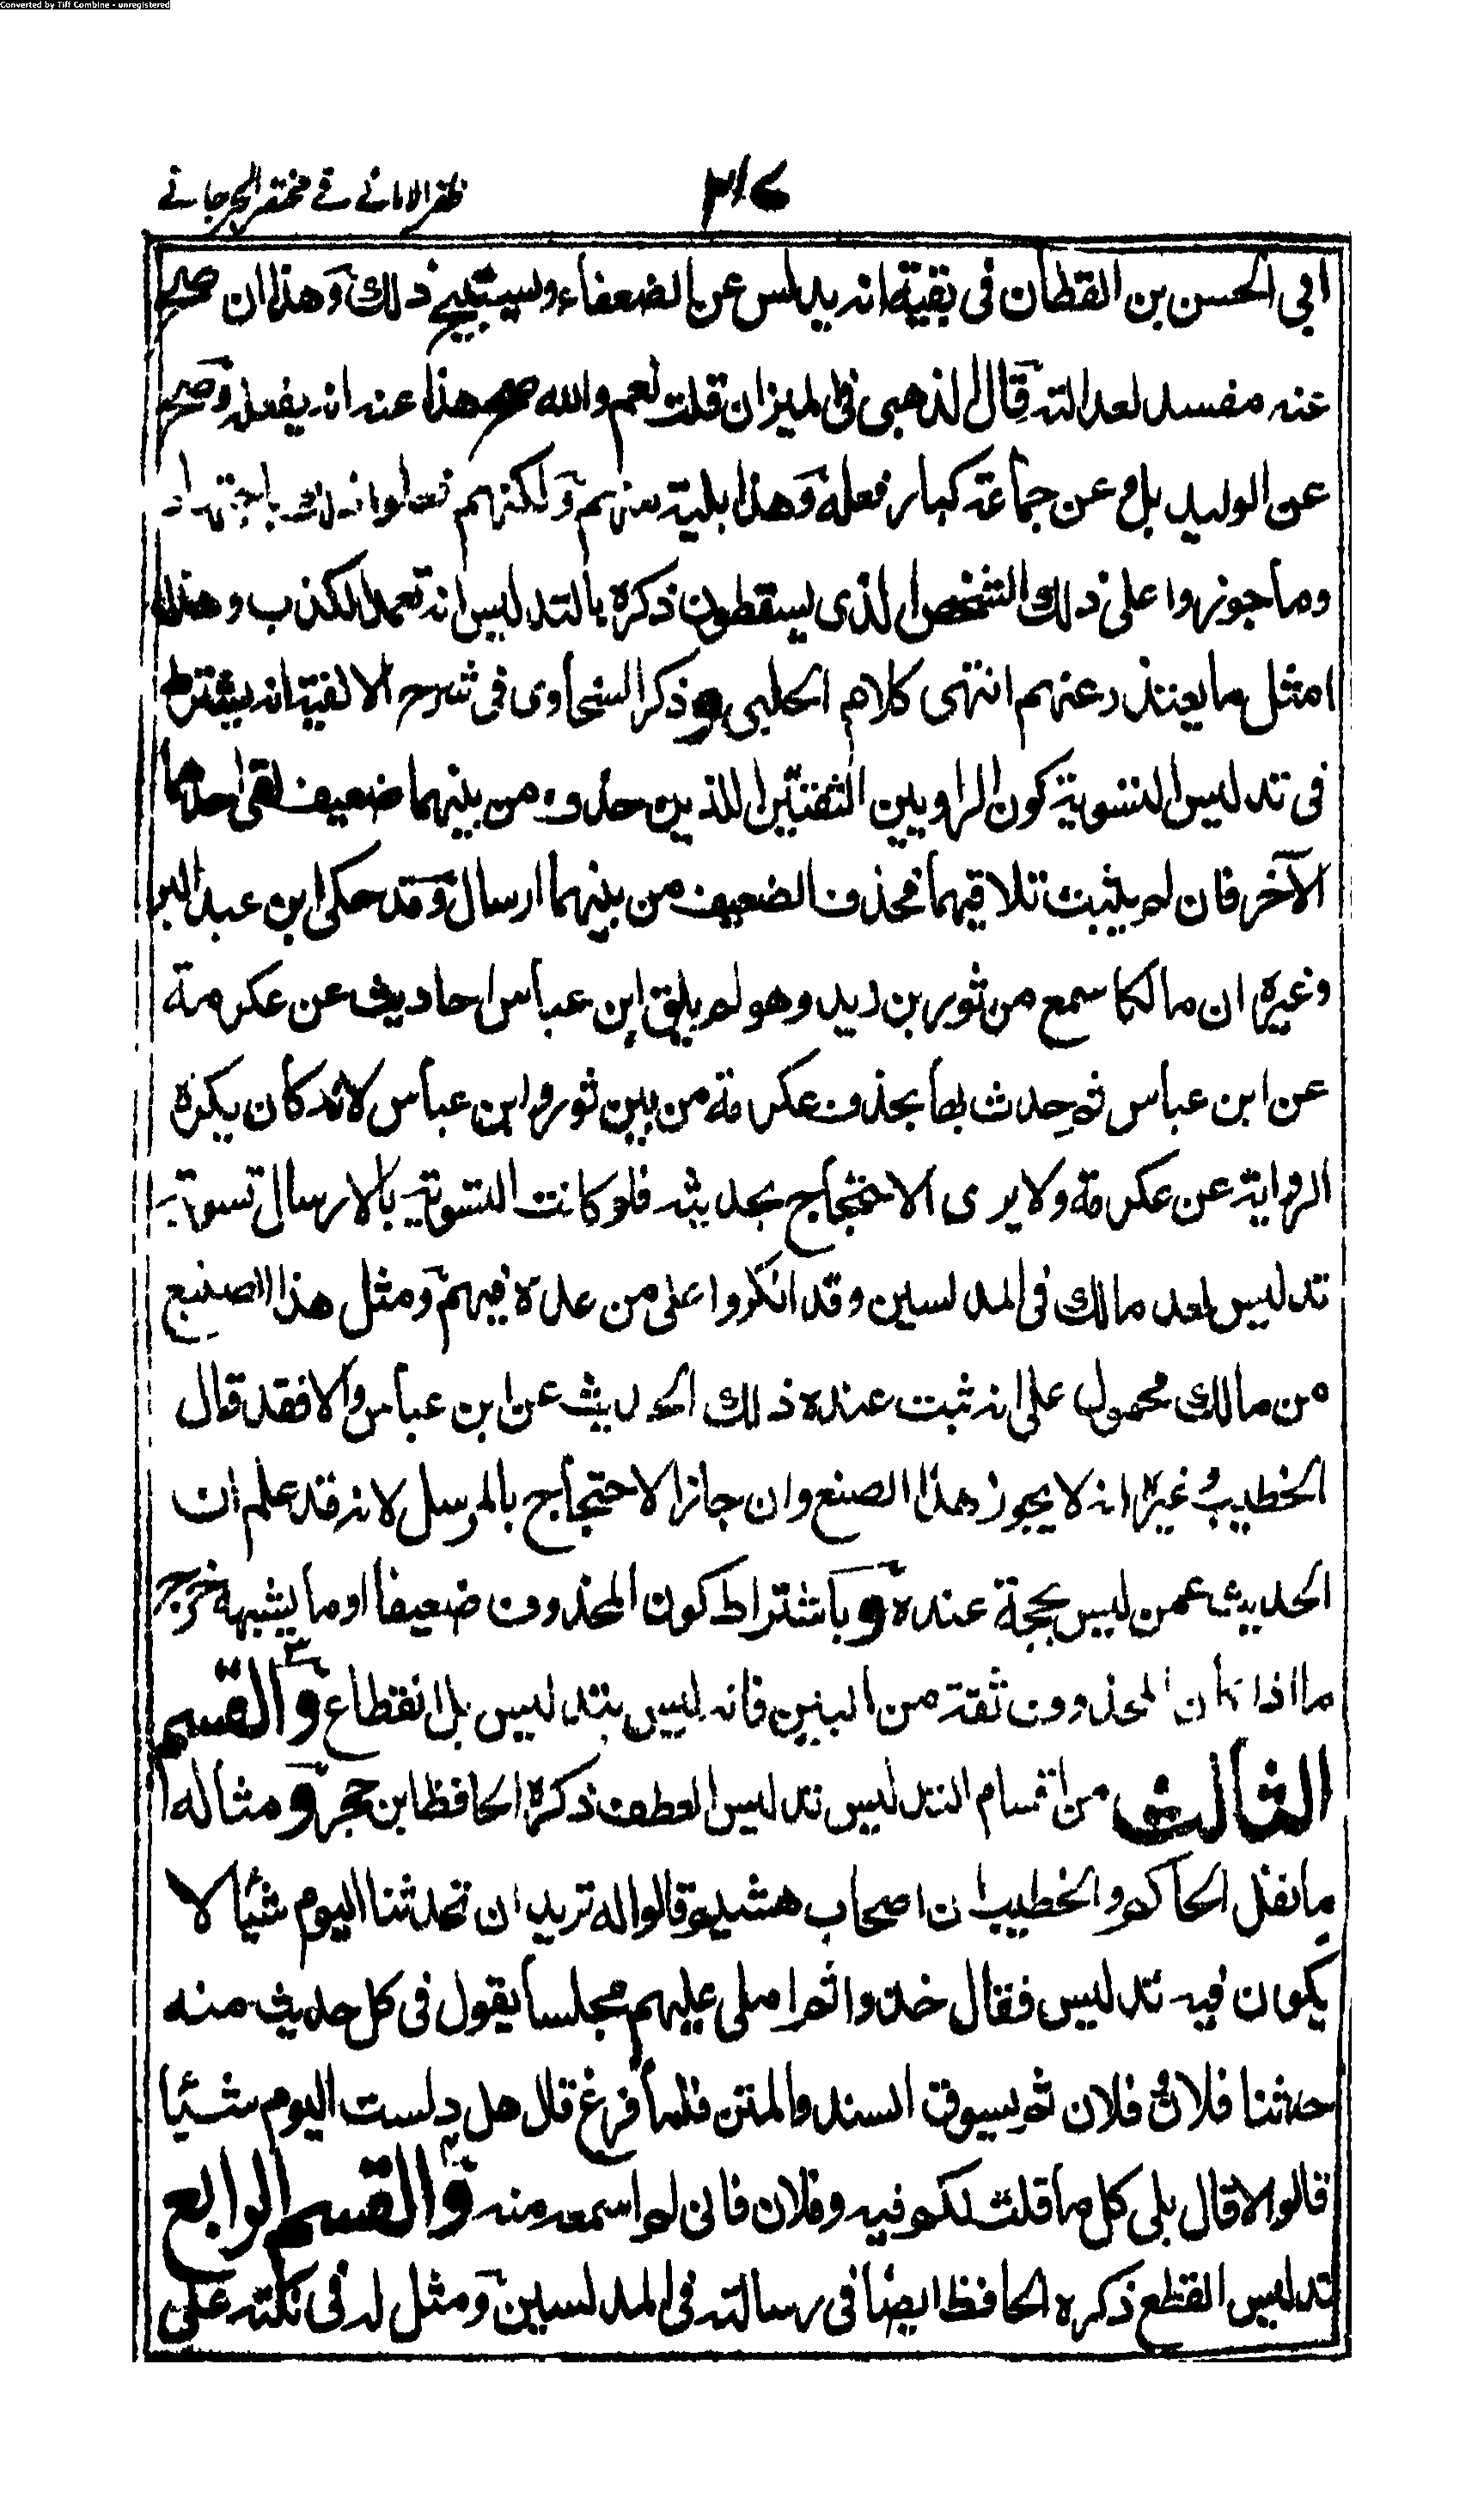 Converted by Tiff Combine - unregistered
ظفر الامانى فے مختصر الجرجانے
٢١٧
ابى الحسن بن القطان فى بقية انه يدلس عن الضعفاء ويستبيح ذلك وهذا ان صح
عنه مفسد لعدالته قال الذهبى فى الميزان قلت نعم والله صح هذا عنه انه يفعله وصح
عن الوليد بل وعن جماعة كبار فعله وهذا بلية منهم ولكنهم فعلوا ذلك باجتهاد
وما جوزوا على ذلك الشخص الذى يسقطون ذكره بالتدليس انه تعمد الكذب وهذا
امثل ما يعتذر عنهم انتهى كلام الحلبى وذكر السخاوى فى شرح الالفية انه يشترط
فى تدليس التسوية كون الراويين الثقتين اللذين حذف من بينهما ضعيف لقى احدهما
الآخر فان لم يثبت تلاقيهما فحذف الضعيف من بينهما ارسال وقد حكى ابن عبد البر
وغيره ان مالكا سمع من ثور بن زيد وهو لم يلق ابن عباس احاديث عن عكرمة
عن ابن عباس ثم حدث بها بحذف عكرمة من بين ثور وابن عباس لانه كان يكره
الرواية عن عكرمة ولا يرى الاحتجاج بحديثه فلو كانت التسوية بالارسال تسوية
تدليس لعد مالك فى المدلسين وقد انكروا على من عده فيهم ومثل هذا الصنيع
من مالك محمول على انه ثبت عنده ذلك الحديث عن ابن عباس والا فقد قال
الخطيب وغيره انه لا يجوز هذا الصنع وان جاز الاحتجاج بالمرسل لانه قد علم ان
الحديث عمن ليس بحجة عنده وباشتراط كون المحذوف ضعيفا او ما يشبهه خرج
ما اذا كان المحذوف ثقة من البنين فانه ليس بتدليس بل انقطاع والقسم
الثالث من اقسام التدليس تدليس العطف ذكره الحافظ ابن حجر ومثاله
ما نقل الحاكم والخطيب ان اصحاب هشيم قالوا له تريد ان تحدثنا اليوم شيئا لا
يكون فيه تدليس فقال خذوا ثم املى عليهم مجلسا يقول فى كل حديث منه
حدثنا فلان وفلان ثم يسوق السند والمتن فلما فرغ قال هل دلست اليوم شيئا
قالوا لا قال بلى كل ما قلت لكم فيه وفلان فانى لم اسمعه منه والقسم الرابع
تدليس القطع ذكره الحافظ ايضا فى رسالته فى المدلسين ومثل له فى نكته على